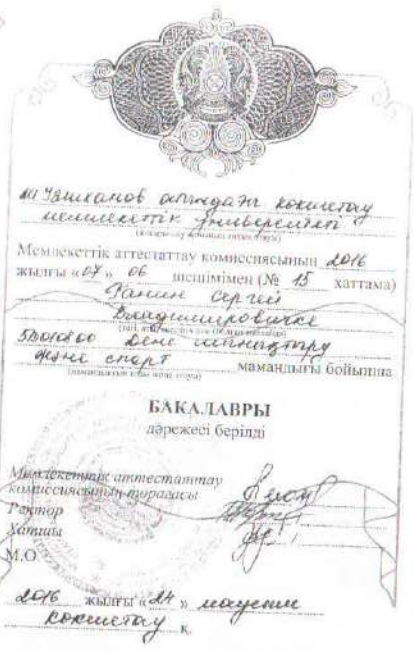 Ш Уәлиханов атындағы Көкшетау
мемлекеттік университеті
Мемлекеттік аттестаттау комиссиясының 2016
жылғы «07» 06 шешімімен (№ 15 хаттама)
Фанин Сергей
Владимировичке
5В010800 Дене шынықтыру
және спорт мамандығы бойынша
БАКАЛАВРЫ
дәрежесі берілді
Мемлекеттік аттестаттау
комиссиясының төрағасы
Ректор
Хатшы
М.О.
2016 жылғы «24» маусым
Көкшетау қ.